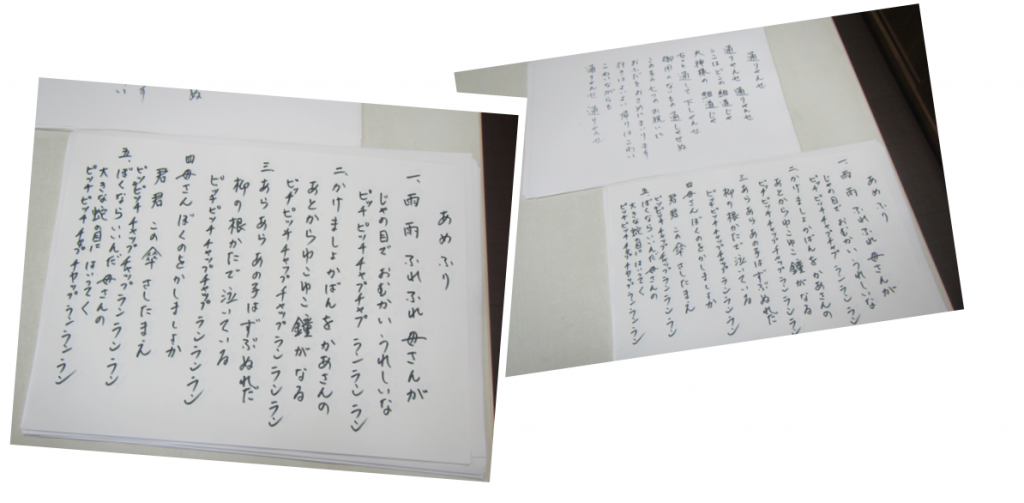 ぬ
す
い
あめふり
一、雨 雨 ふれふれ 母さんが
じゃの目で おむかい うれしいな
ピッチピッチ チャップチャップ ランランラン
二、かけましょ かばんを かあさんの
あとから ゆこゆこ 鐘がなる
ピッチピッチ チャップチャップ ランランラン
三、あらあら あの子は ずぶぬれだ
柳の根かたで 泣いている
ピッチピッチ チャップチャップ ランランラン
四、母さん ぼくのを かしましょか
君君 この傘 さしたまえ
ピッチピッチ チャップチャップ ランランラン
五、ぼくなら いいんだ 母さんの
大きな蛇の目に はいってく
ピッチピッチ チャップチャップ ランランラン
通りゃんせ
通りゃんせ 通りゃんせ
ここはどこの 細道じゃ
天神様の 細道じゃ
ちっと通して 下しゃんせ
御用のないもの 通しゃせぬ
この子の七つの お祝いに
おふだをおさめにまいります
行きはよいよい 帰りはこわい
こわいながらも
通りゃんせ 通りゃんせ
あめふり
一、雨 雨 ふれふれ 母さんが
じゃの目で おむかい うれしいな
ピッチピッチ チャップチャップ ランランラン
二、かけましょ かばんを かあさんの
あとから ゆこゆこ 鐘がなる
ピッチピッチ チャップチャップ ランランラン
三、あらあら あの子は ずぶぬれだ
柳の根かたで 泣いている
ピッチピッチ チャップチャップ ランランラン
四、母さん ぼくのを かしましょか
君君 この傘 さしたまえ
ピッチピッチ チャップチャップ ランランラン
五、ぼくなら いいんだ 母さんの
大きな蛇の目に はいってく
ピッチピッチ チャップチャップ ランランラン